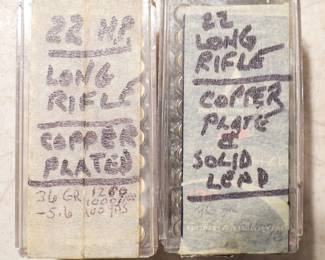 22 HP
LONG
RIFLE
COPPER
PLATED
36 GR 1280
-5.6 100 YDS
22
LONG
RIFLE
COPPER
PLATE
&
SOLID
LEAD